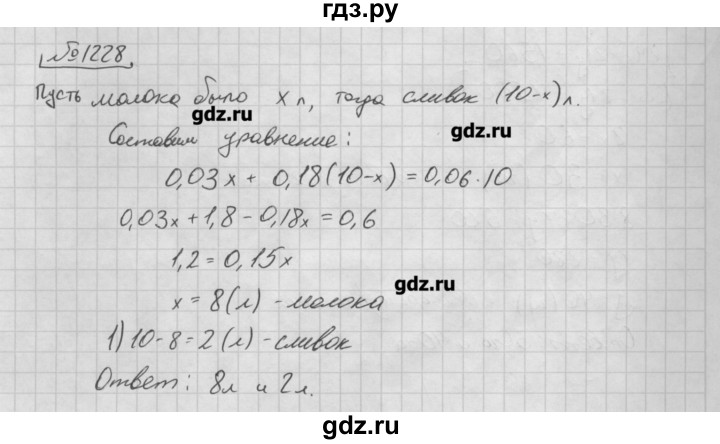 гдз.ру
№1228.
Пусть молока было х л, тогда сливок (10-х)л.
gdz.ru
gdz.ru
Составим уравнение:
0,03х + 0,18(10-х) = 0,06·10
0,03х + 1,8 - 0,18х = 0,6
1,2 = 0,15х
gdz.ru
х = 8(л) - молока
1) 10-8=2(л) - сливок
Ответ: 8л и 2л.
gdz.ru